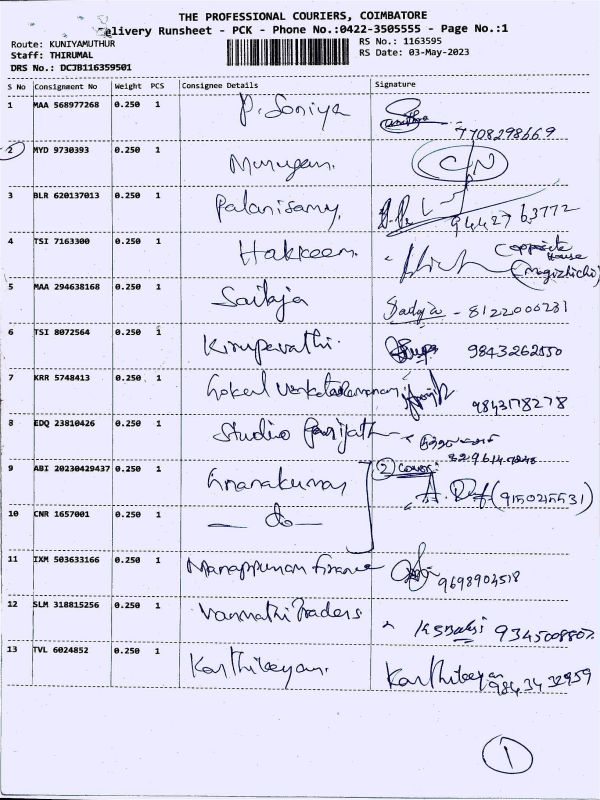 THE PROFESSIONAL COURIERS, COIMBATORE
elivery Runsheet - PCK - Phone No.:0422-3505555 - Page No.:1
Route: KUNIYAMUTHUR
RS No.: 1163595
Staff: THIRUMAL
RS Date: 03-May-2023
DRS No.: DCJB116359501
S No Consignment No Weight PCS Consignee Details Signature
1 MAA 568977268 0.250 1 P. Soniya
7708298669
2 MYD 9730393 0.250 1 Murugan. CN
3 BLR 620137013 0.250 1 Palanisamy,
94427 63772
4 TSI 7163300 0.250 1 Hakkeem. Opposite
House
5 MAA 294638168 0.250 1 Sailaja Sadga - 8122006231
6 TSI 8072564 0.250 1 Kirupavathi. 9843262550
7 KRR 5748413 0.250 1 Gokul Venkataramanan
9843178278
8 EDQ 23810426 0.250 1 Studio Parijath
9 ABI 20230429437 0.250 1 Gnanakumar 2
(9150215531)
10 CNR 1657001 0.250 1 — do —
11 IXM 503633166 0.250 1 Manappuram finance
9698904518
12 SLM 318815256 0.250 1 Vanmathi Traders
13 TVL 6024852 0.250 1 Karthikeyan. Karthikeyan
98434 32959
1